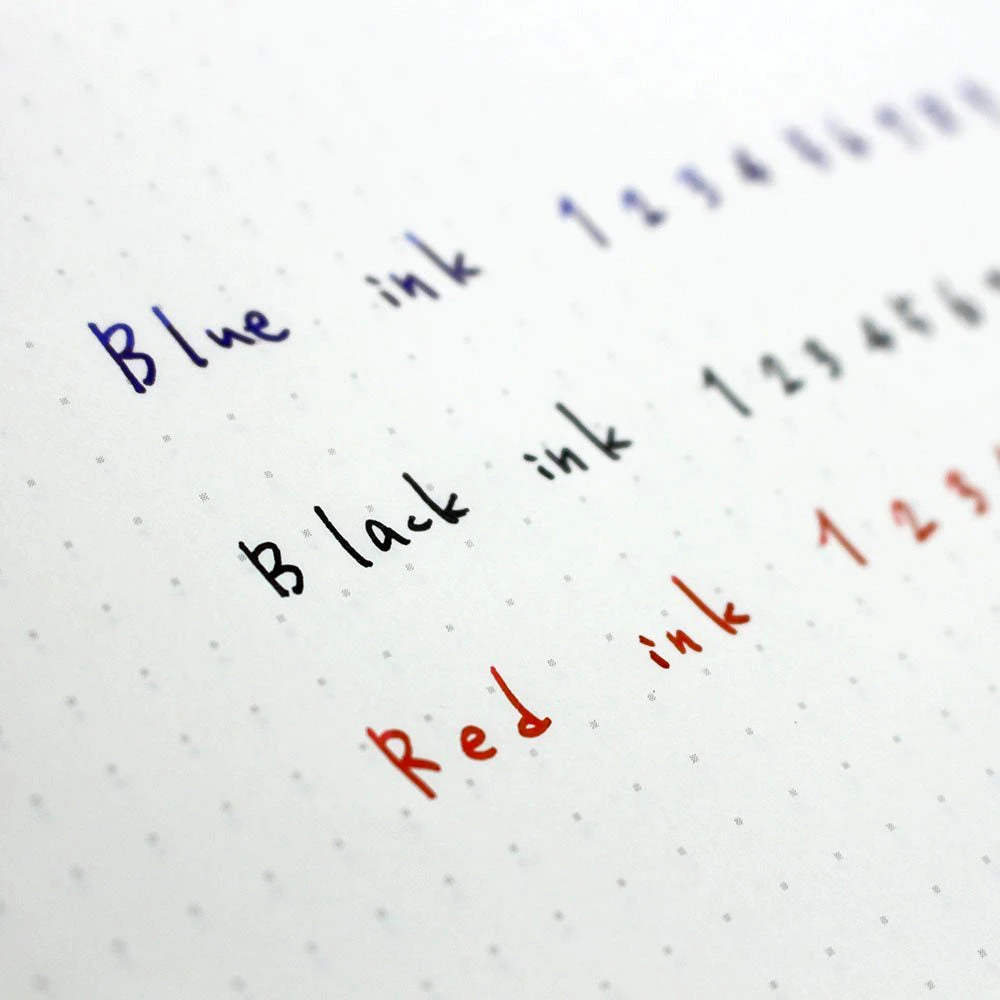 Blue ink 1 2 3 4 5 6 7 8 9
Black ink 1 2 3 4 5 6
Red ink 1 2 3